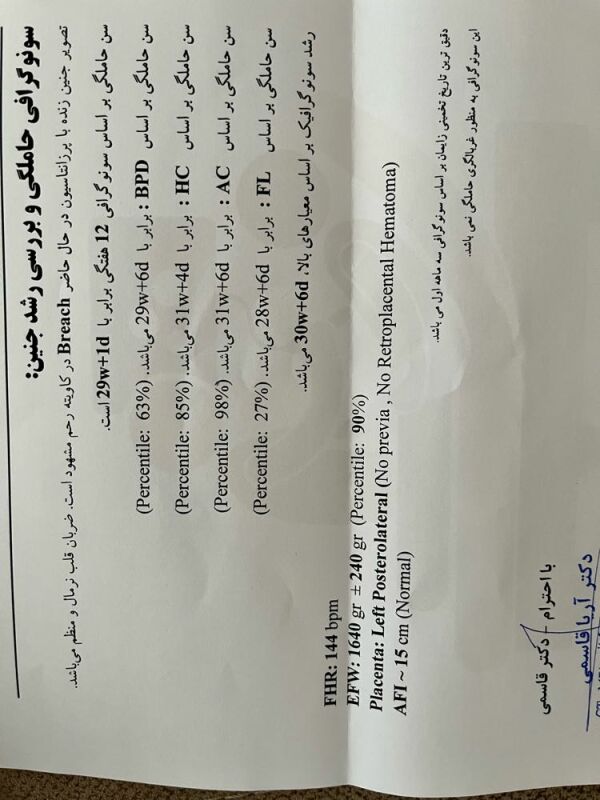 سونوگرافی حاملگی و بررسی رشد جنین:
تصویر جنین زنده با پرزانتاسیون در حال حاضر Breach در کاویته رحم مشهود است. ضربان قلب نرمال و منظم می‌باشد.
سن حاملگی بر اساس سونوگرافی 12 هفتگی برابر با 29w+1d است.
سن حاملگی بر اساس BPD : برابر با 29w+6d می‌باشد. (Percentile: 63%)
سن حاملگی بر اساس HC : برابر با 31w+4d می‌باشد. (Percentile: 85%)
سن حاملگی بر اساس AC : برابر با 31w+6d می‌باشد. (Percentile: 98%)
سن حاملگی بر اساس FL : برابر با 28w+6d می‌باشد. (Percentile: 27%)
رشد سونوگرافیک بر اساس معیارهای بالا، 30w+6d می‌باشد.
FHR: 144 bpm
EFW: 1640 gr ± 240 gr (Percentile: 90%)
Placenta: Left Posterolateral (No previa , No Retroplacental Hematoma)
AFI ~ 15 cm (Normal)
دقیق ترین تاریخ تخمینی زایمان بر اساس سونوگرافی سه ماهه اول می باشد.
این سونوگرافی به منظور غربالگری حاملگی نمی باشد.
با احترام - دکتر قاسمی
دکتر آریا قاسمی